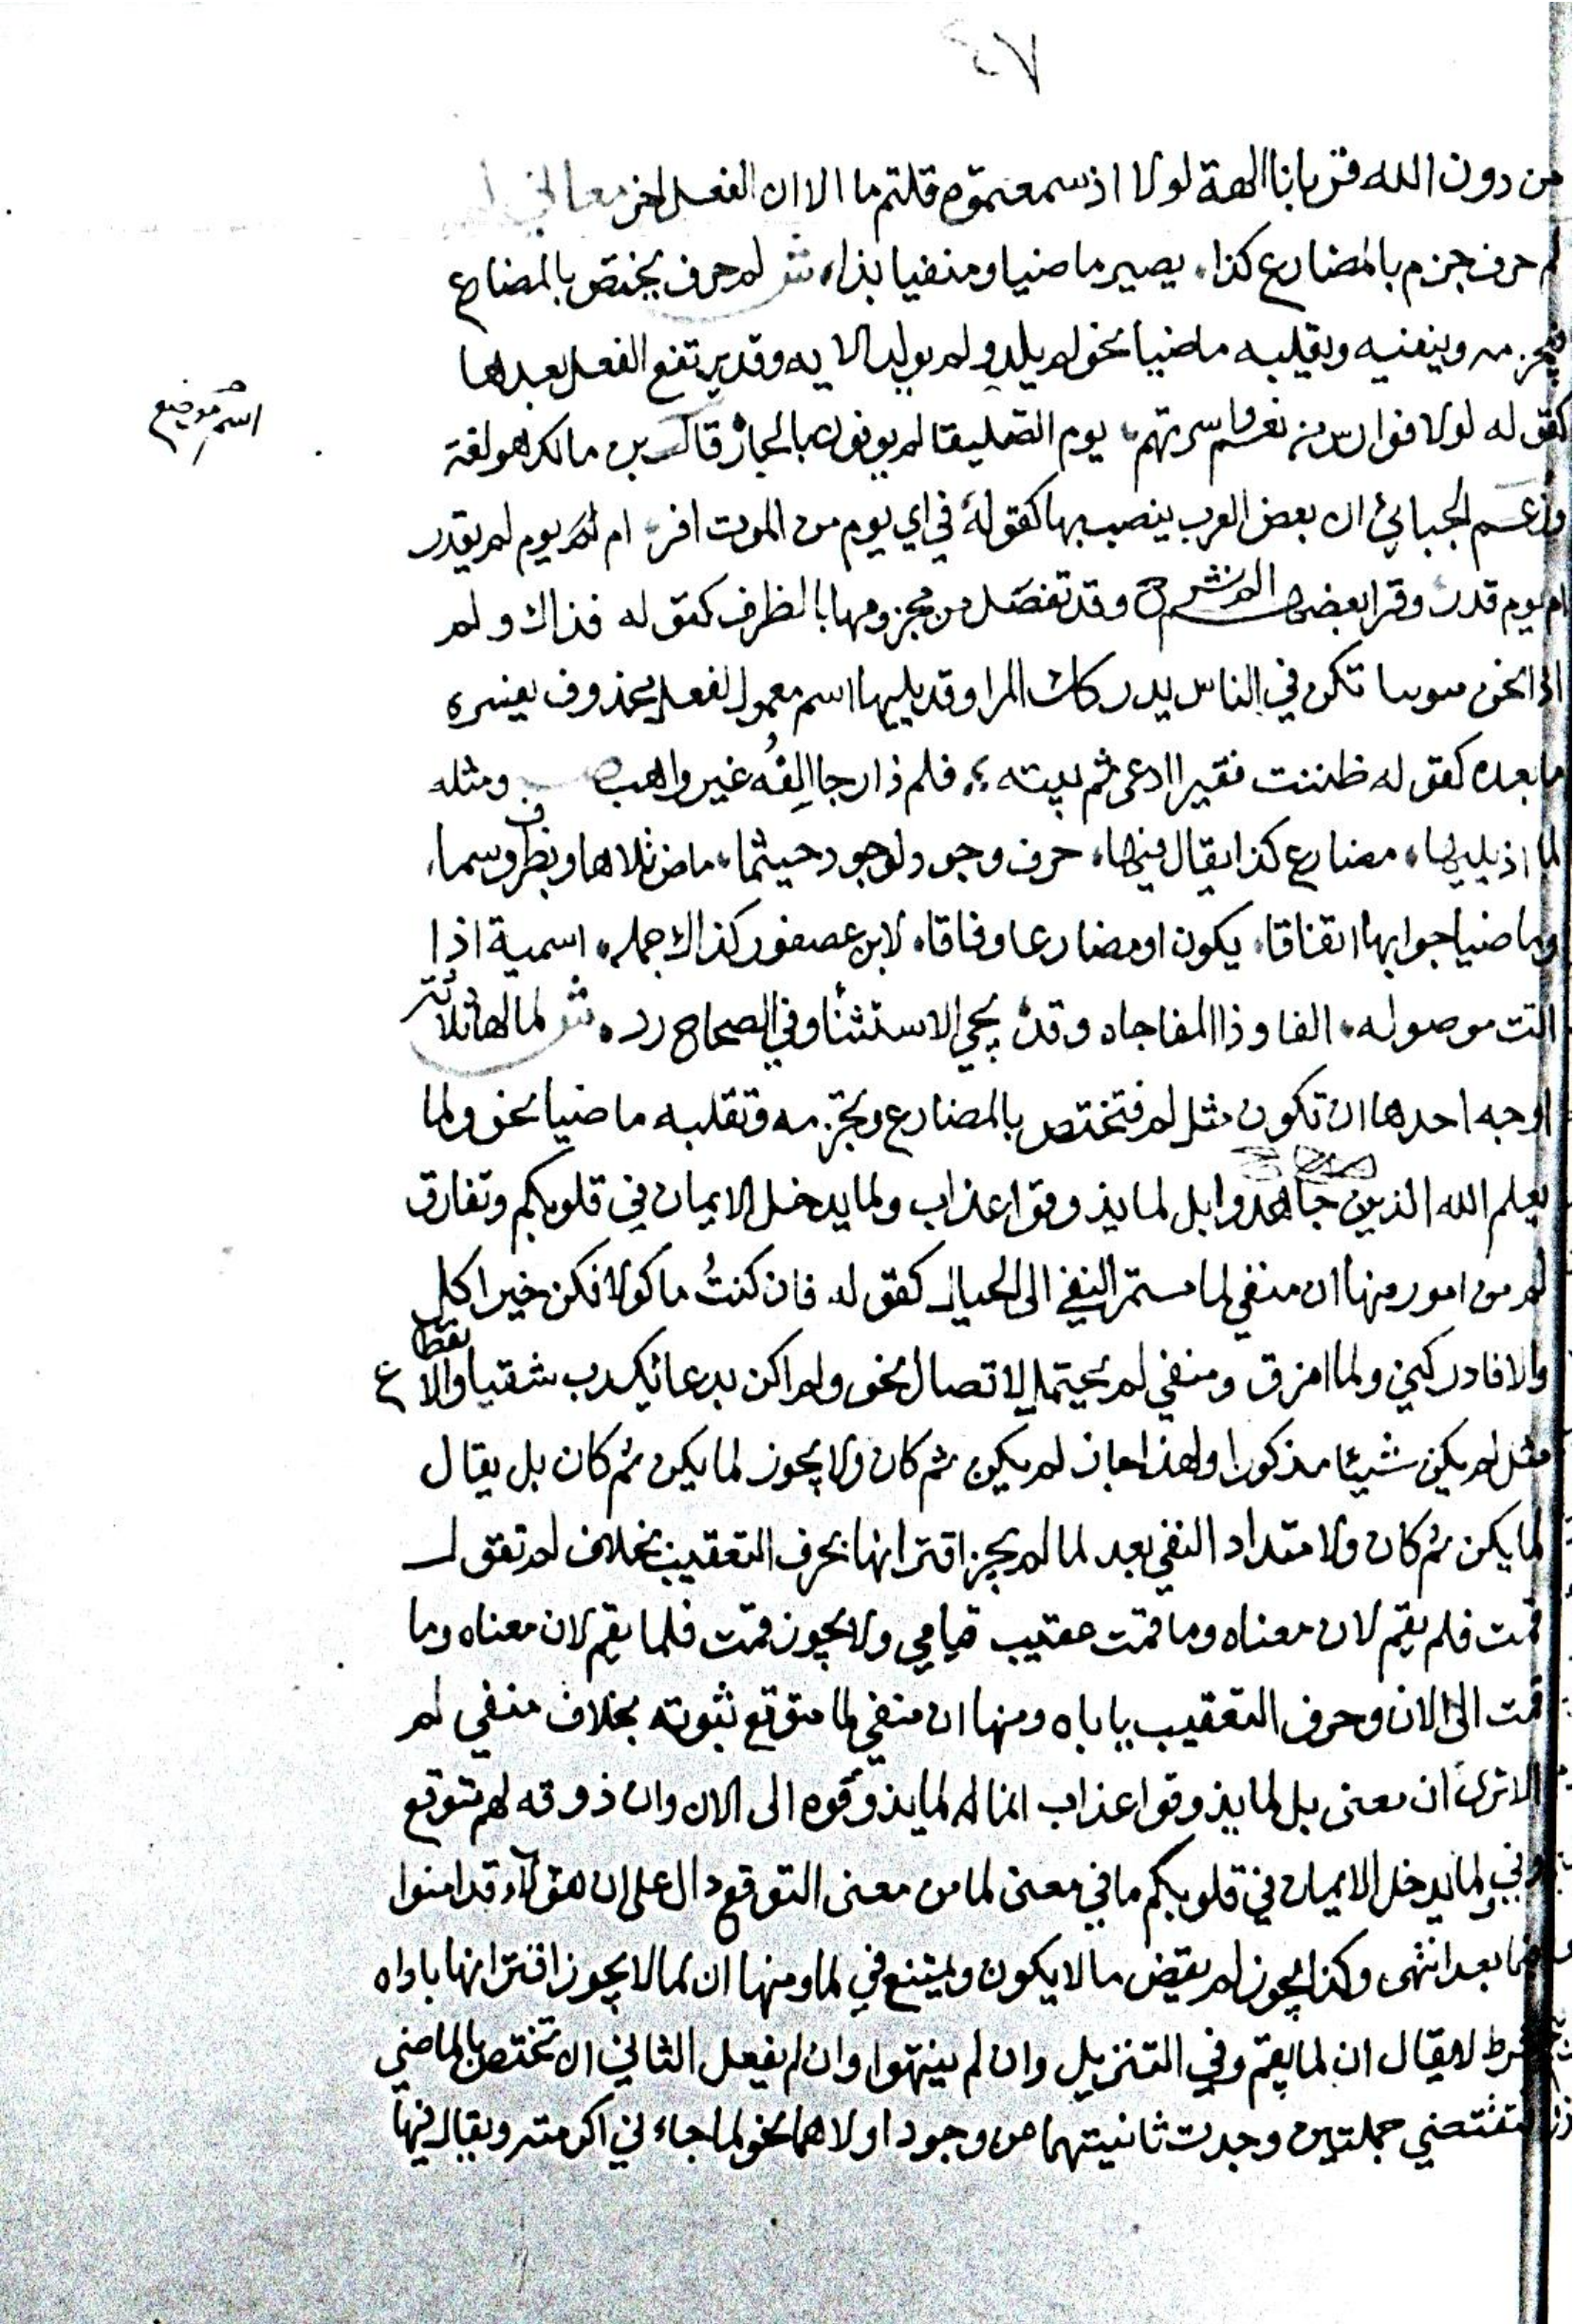 ٤٧
من دون الله قربانا الهة لولا اذ سمعتموه قلتم ما الا ان الفعل اخر معاني
لم حرف جزم بالمضارع كذا، يصير ماضيا ومنفيا بذا، ش لم حرف يختص بالمضارع
فيجزمه وينفيه ويقلبه ماضيا نحو لم يلد ولم يولد الايه وقد يرتفع الفعل بعدها
كقوله لولا فوارس من نعم واسرتهم، يوم الصليفا لم يوفون بالجار قال بن مالك هو لغة
اسم موضع
وزعم الجبائي ان بعض العرب ينصب بها كقوله في اي يوم من الموت افر، ام يوم لم يقدر
ام يوم قدر وقرا بعضهم الم نشرح وقد تفصل من مجزومها بالظرف كقوله فذاك ولم
اذا نحن تكن في الناس يدركك المرا وقد يليها اسم معمول لفعل محذوف يفسره
ما بعده كقوله ظننت فقيرا ادعى ثم فلم ذا رجا الفه غير واهب ومثله
لما اذ يليها، مضارع كذا يقال فيها، حرف وجود لوجود حيثما، ماض تلاها وبظرف وسما،
وماضيا جوابها اتفاقا، يكون او مضارعا وفاقا، لابن عصفور كذاك جمله، اسمية اذا
اتت موصوله، الفا وذا المفاجاه وقد يجي الاستثنا وفي الصحاح رده ش لما لها ثلاثة
اوجه احدها ان تكون مثل لم فتختص بالمضارع وتجزمه وتقلبه ماضيا نحو ولما
يعلم الله الذين جاهدوا بل لما يذوقوا عذاب ولما يدخل الايمان في قلوبكم وتفارق
لم من امور منها ان منفي لما مستمر النفي الى الحال كقوله فان كنتُ ماكولا فكن خير اكل
والا فادركني ولما امزق ومنفي لم يحتمل الاتصال نحو ولم اكن بدعائك رب شقيا والانقطاع
مثل لم يكن شيئا مذكورا ولهذا جاز لم يكن ثم كان ولا يجوز لما يكن ثم كان بل يقال
لما يكن ثم كان ولامتداد النفي بعد لما لم يجز اقترانها بحرف التعقيب بخلاف لم تقول
قمت فلم يقم لان معناه وما قمت عقيب قيامي ولا يجوز قمت فلما يقم لان معناه وما
قمت الى الان وحرف التعقيب ياباه ومنها ان منفي لما متوقع ثبوته بخلاف منفي لم
الا ترى ان معنى بل لما يذوقوا عذاب انما لم لما يذوقوه الى الان وان ذوقه لهم متوقع
وفي ولما يدخل الايمان في قلوبكم ما في معنى لما من معنى التوقع دال على ان هؤلاء قد امنوا
فيما بعد انتهى وكذا يجوز لم يقض ما لا يكون ويمتنع في لما ومنها ان لما لا يجوز اقترانها باداه
شرط لا يقال ان لما يقم وفي التنزيل وان لم ينتهوا وان لم يفعل الثاني ان تختص بالماضي
فتقتضي جملتين وجدت ثانيتهما من وجود اولاهما نحو لما جاءني اكرمته ويقال فيها